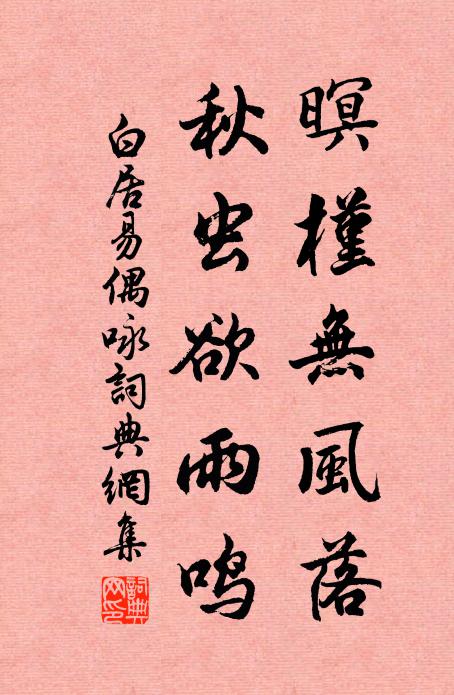 暝槿無風落
秋虫欲雨鸣
白居易偶咏詞典網集
詞典网印